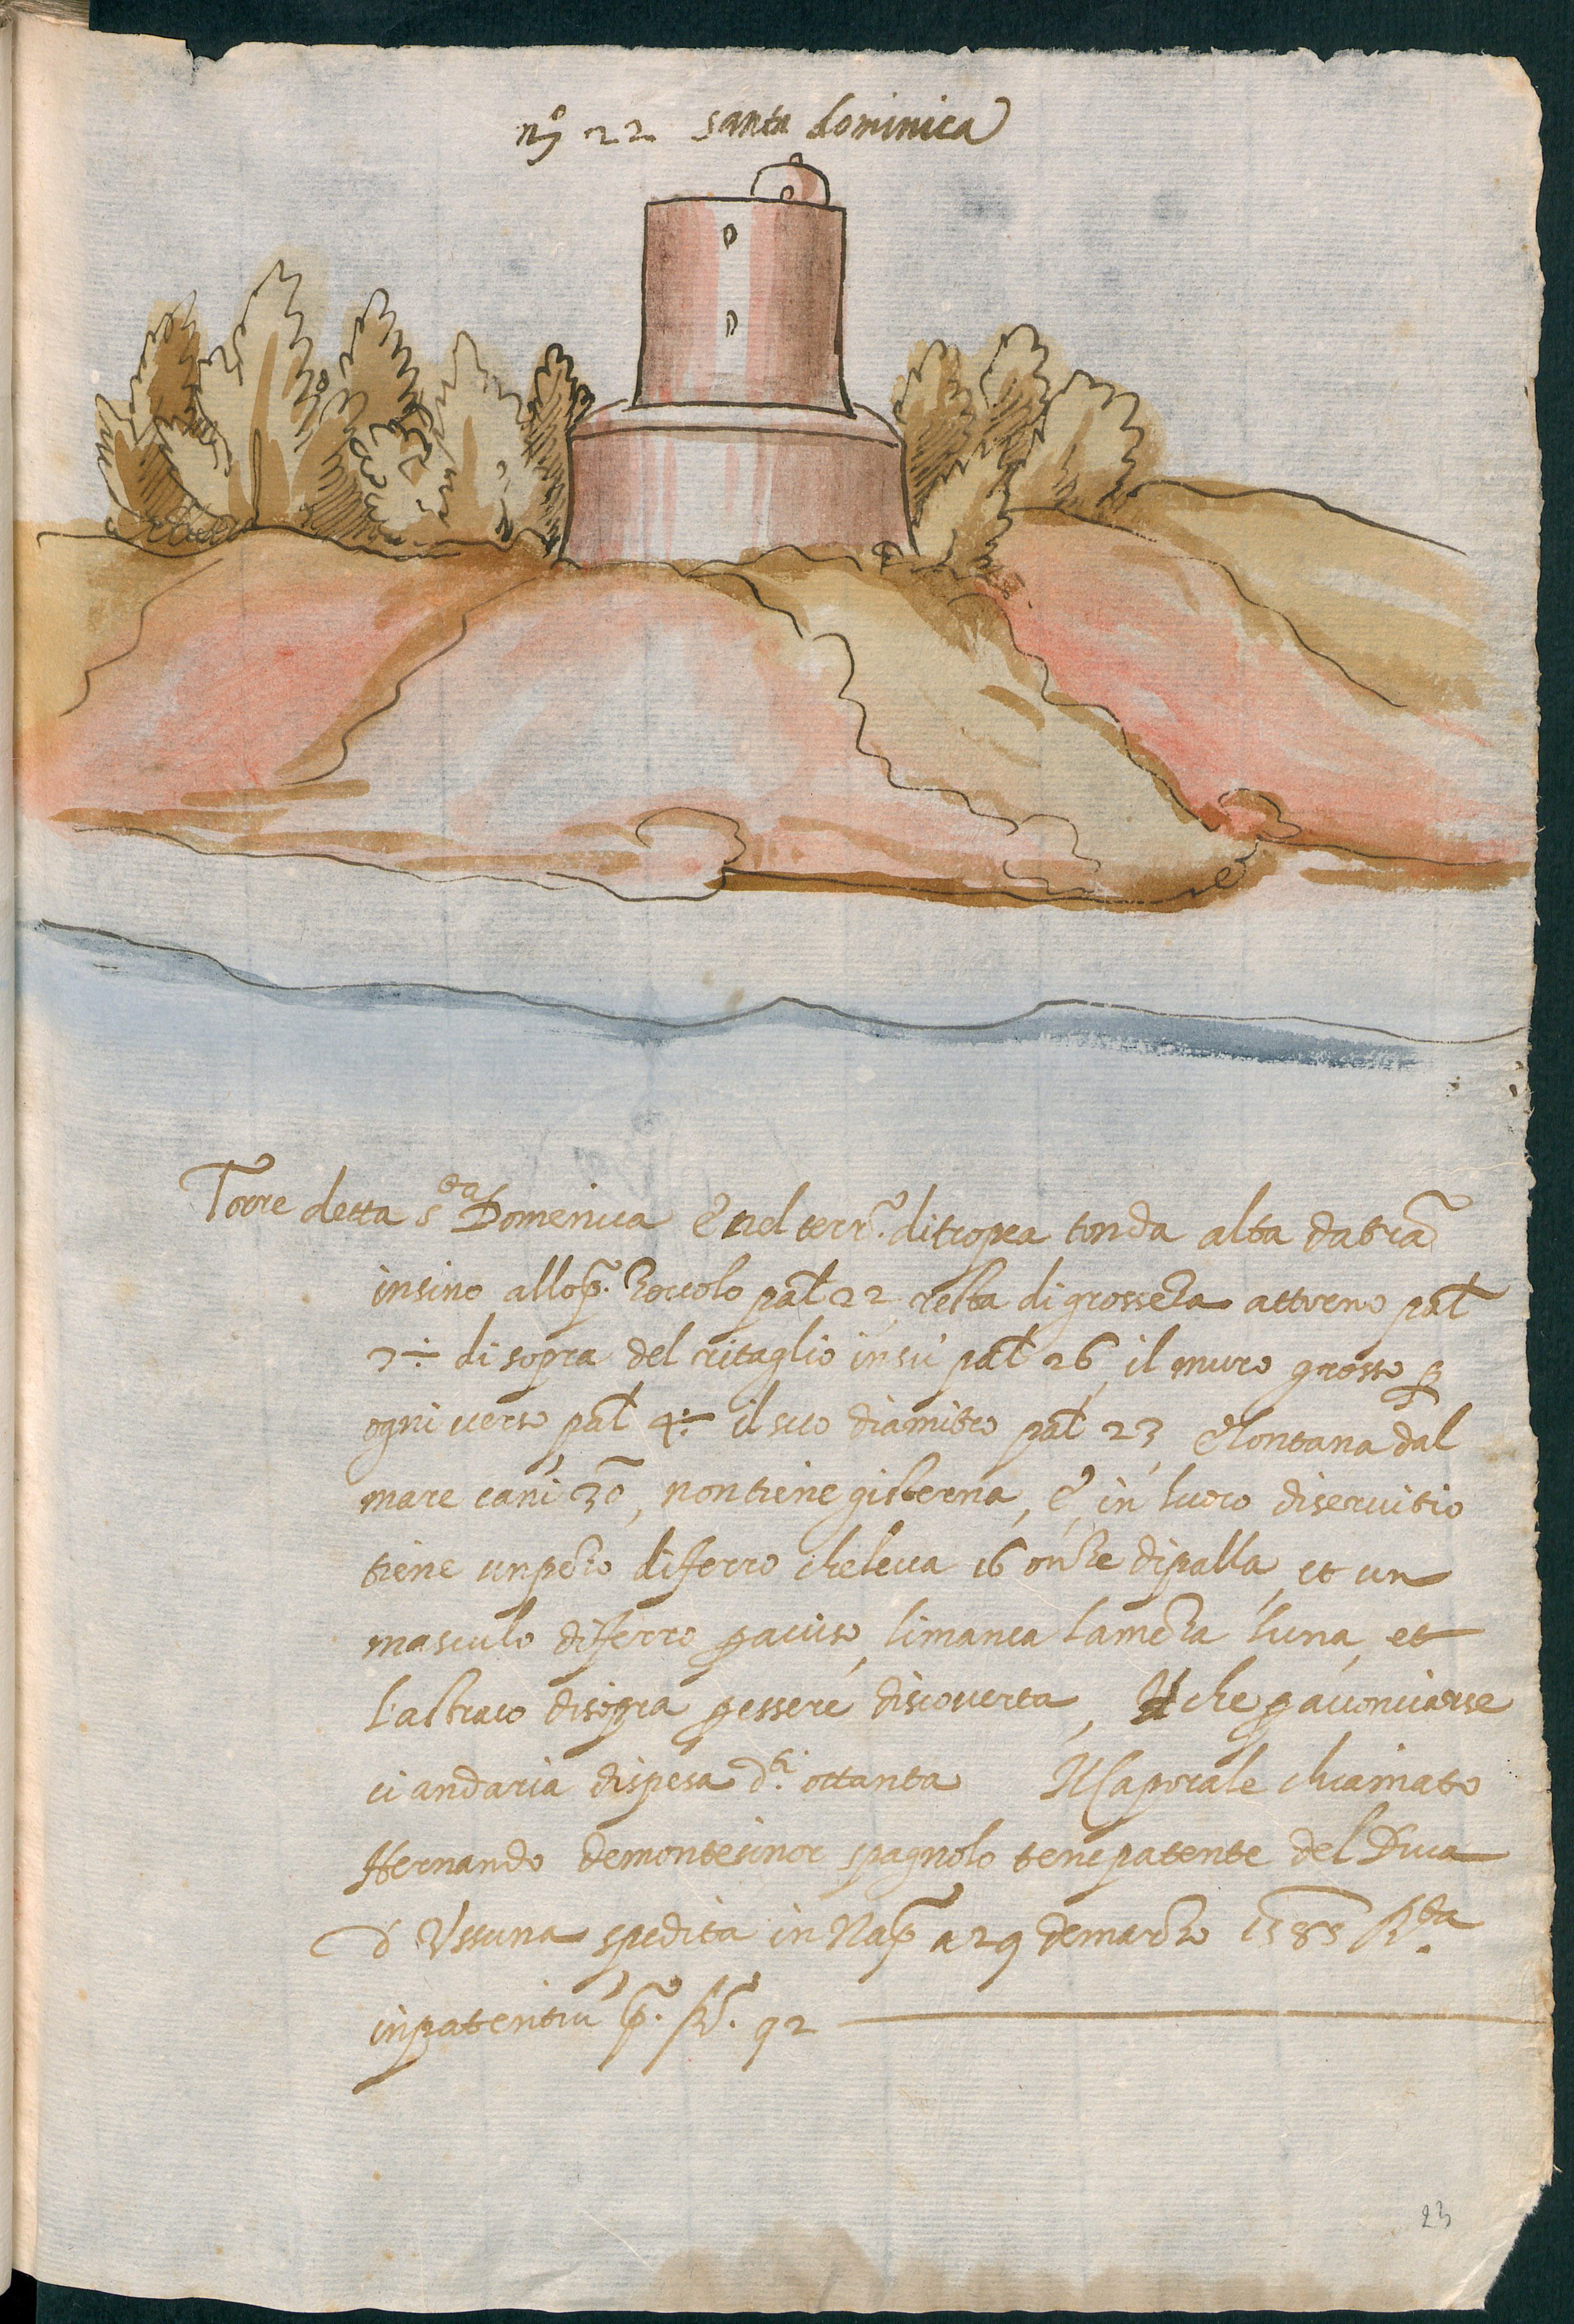 nº 22 santa dominica
Torre detta sta Domenica è nel terro. di tropea tonda alta da terra
insino allo p. zoccolo pal 22 resta di grossezza attorno pal
7÷ di sopra del ritaglio in su pal 26, il muro grosso p
ogni verso pal 4÷ il suo diamitro pal 23 è lontana dal
mare cani 30, non tiene gisterna, è in luoco di servitio
tiene un pezo di ferro che leva 16 onze di palla et un
masculo di ferro p aviso, li manca la meza luna et
l'astraco di sopra p essere discoverta, Il che p acconciarse
ci andaria di spesa d.ti ottanta Il Caporale chiamato
Hernando de montesinor spagnolo tene patente del Duca
d'Ussuna spedita in Nap a 29 de marzo 1585 Rda.
in patentiu p. fo. 92
23